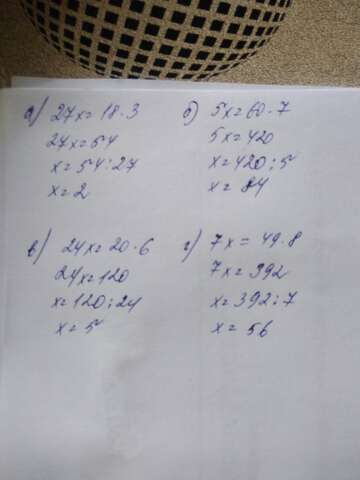 а) 27x = 18 · 3
27x = 54
x = 54 : 27
x = 2
б) 5x = 60 · 7
5x = 420
x = 420 : 5
x = 84
в) 24x = 20 · 6
24x = 120
x = 120 : 24
x = 5
г) 7x = 49 · 8
7x = 392
x = 392 : 7
x = 56